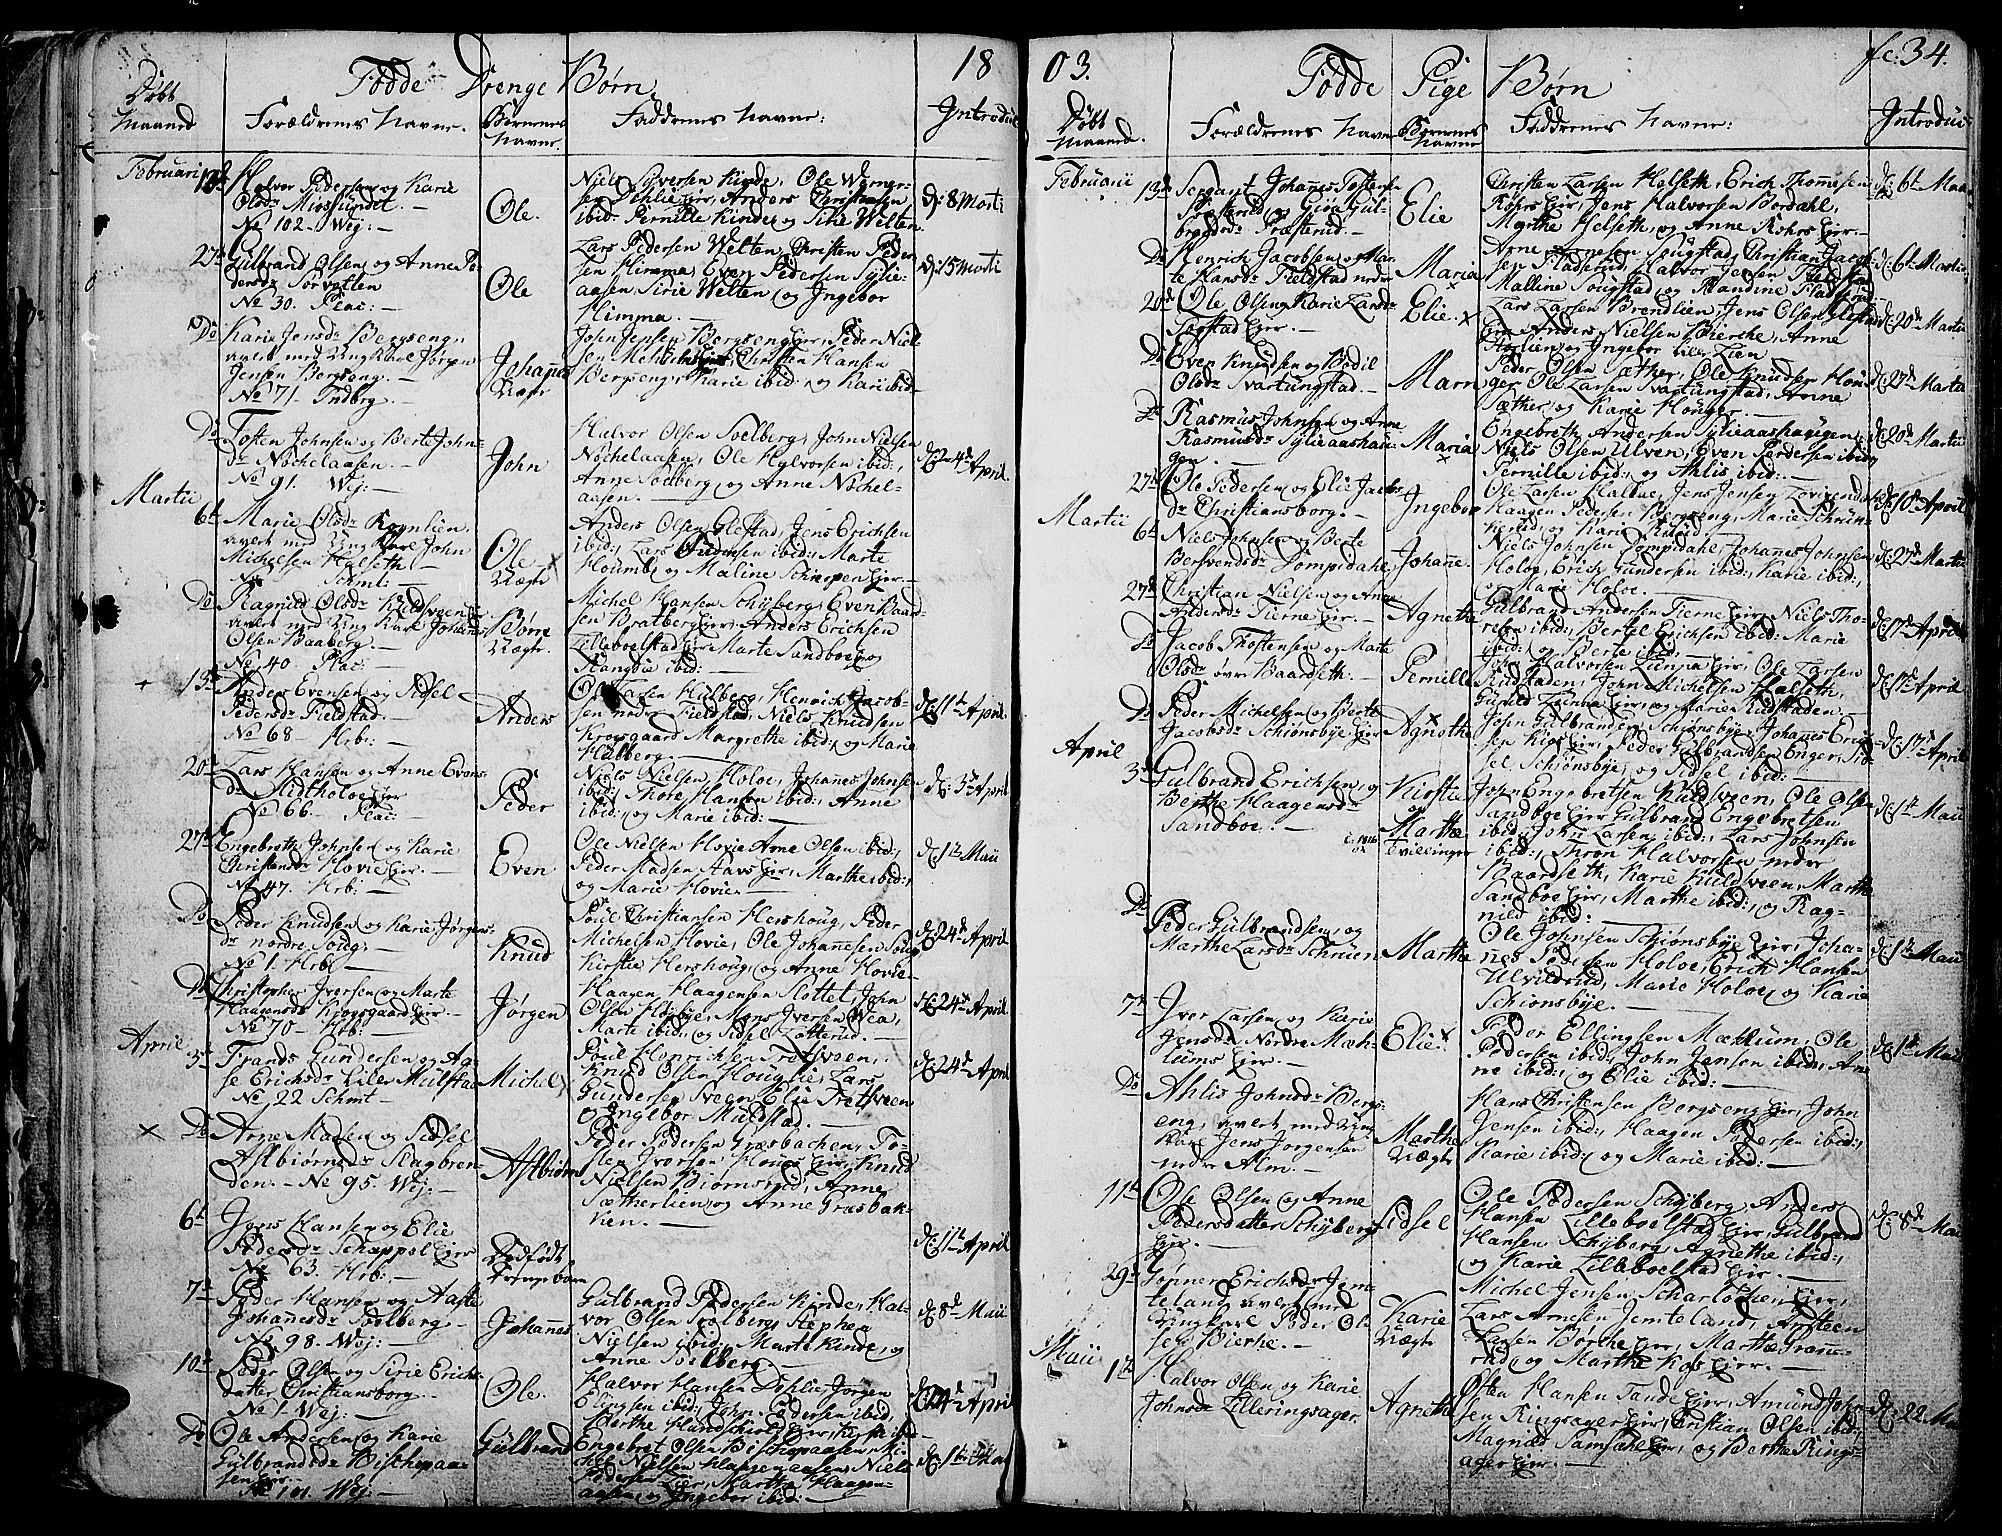 Fødde Drenge Børn 18
Døbt
Maaned
Forældrenes Navne.
Børnenes Navne.
Faddrenes Navne:
Introdu
Februarii
Halvor Pedersen og Karie
Olsdr Mossundet.
No 102 - Wej: -
Ole.
ibid: Pernille Kinde, og Sirie Welten.
d: 8 Marti
27de Gulbrand Olsen og Anne Pe-
dersdr Torvetlen
No 30. Plac:
Ole
Lars Pedersen Welten, Christen Peder-
sen Himma, Even Pedersen Sylie-
aasen, Sirie Welten og Ingebor
Himma. -
d: 15 Marti
Do Karie Jensdr Bergseng,
avert med Ung Karl Jørgen
Jensen Bergseng. -
No 71. Indbrg. -
Johannes
Uægte
John Jensen Bergseng Ejer, Peder Niel-
Christen Hansen
Bergseng, Karie ibid: og Kari ibid:
Do Tosten Johnsen og Berte John-
dr Nochelaasen. -
No 91. Wej: -
John
Halvor Olsen Soelberg, John Nielsen
Nochelaasen, Ole Halvorsen ibid:,
Anne Soelberg og Anne Nochel-
aasen. -
d: 24de April.
Martii
6te Marie Olsdr Kornlien,
avert med Ung Karl John
Michelsen Halseth -
No Schmt: -
Ole -
Uægte
Anders Olsen Glestad, Jens Erichsen
ibid:, Lars ibid: Marte
Houmb, og Maline Schierpen Ejer -
Do Ragnild Olsdr Kuldsveen
avert med Ung Karl Johannes
Olsen Baaberg. -
No 40. Plac: -
Børre
Uægte.
Michel Hansen Schyberg, Even Baard-
sen Bratberg Ejer, Anders Erichsen
Lilleboelstad Ejer Marte Sandboe og
Rangdie ibid: -
13de Anders Evensen og Sidsel
Pedersdr Fieldstad.
No 68 - Hrb: -
Anders
Ole Larsen Hulberg, Henrich Jacob-
sen nedre Fieldstad, Niels Knudsen
Krovsgaard Margrethe ibid:, og Marie
Halberg. -
d: 11te April.
20de Lars Hansen og Anne Evens-
dr Ridtholoe Ejer
No 66. Plac:
Peder
Niels Nielsen Holoe, Johanes Johnsen
ibid:, Thore Hansen ibid:, Anne
ibid: og Marie ibid: -
d: 3de April
27de Engebreth Johnsen og Karie
Christensdr Hovie Ejer. -
No 47. Hrb: -
Even
Ole Nielsen Hovie Arne Olsen ibid:,
Peder Madsen Aavs Ejer, Marthe ibid:,
og Marie Hovie. -
d: 1te Maii
Do Peder Knudsen og Karie Jørgens-
dr nordre Soug: -
No 1. Hrb: -
Knud
Poul Christiansen Hershoug, Peder
Michelsen Hovie, Ole Johannesen Soug
Kirstie Hershoug, og Anne Hovie -
d: 24de April
Do Christopher Iversen og Marte
Haagensdr Krovsgaard Ejer. -
No 70 - Hrb: -
Jørgen
Haagen Haagensen Slottet, John
Mons Iversen Wea,
Marte ibid:, og Sidsel Lotterud. -
d: 24de April
April
3de Frands Gundersen og Aa-
se Erichsdr Liler Mulstad
No 22 Schmt -
Michel
Poul Henrichsen Tretsveen,
Knud Olsen Houglie, Lars
Gundersen Svegn Elie Tretsveen
og Ingebor Muldstad. -
d: 24de April
Do Arne Madsen og Sidsel
Aslbiørnedr Slagbren-
den. - No 95. Wej: -
Aslbiørn
Peder Pedersen Græsbachen, To-
sten Iversen Houes Ejer, Knud
Nielsen Biørnsgid:, Anne
Sætherlien og Anne Græsbak-
ken. -
6te Jens Hansen og Elie
Pedersdr Schappel Ejer
No 63. Hrb: -
Dødfødt
Drengebarn
d: 11te April
7de Peder Hansen og Aaste
Johanesdr Soelberg. -
No 98. Wej: -
Johanes
Gulbrand Pedersen Kinde, Hal-
vor Olsen Soelberg, Stephen
Nielsen ibid:, Marte Kinde, og
Anne Soelberg. -
d: 8de Maii
10de Peder Olsen og Sirie Erichs-
datter Christiansborg. -
No 1. Wej: -
Ole.
Halvor Hansen Dehlie, Jørgen
Elingsen ibid:, John Pedersen ibid,
d: 24de April
Do Ole Andersen og Karie
Gulbrandsdr Bischepaa-
sen Ejer. -
No 101. Wej -
Gulbrand
Engebret Olsen Bischepaasen, Mi-
chel Nielsen Haagenaasen, Niels
Pedersen Ejer, Marthe Haagen-
aasen, og Ingebor ibid: -
d: 1te Mai
03. Fødde Pige Børn fc: 34.
Døbt
Maaned.
Forældrenes Navne
Børnenes Navne
Faddrenes Navne:
Introdu
Februarii
13de Sergant Johanes Tostensen
Præsterud, og Giøa Gul-
brandsdr Præsterud. -
Elie
Christen Larsen Helseth, Erich Thommesen
Rohrs Ejer, Jens Halvorsen Bordahl,
Myrthe Helseth, og Anne Rohrs Ejer. -
d: 6te Martii
Do Henrich Jacobsen og Mar-
te Hansdr Fieldstad nedre
Maria
Arne Arnesen Sougstad, Christian Jacob-
sen Fladserud, Halvor Jensen
Malline Sougstad, og Randine Fladserud. -
d: 6te Martii
20de Ole Olsen og Karie Larsdr
Sogstad Ejer. -
Elie.
Lars Larsen Brendlien, Jens Olsen Glestad
Ejer Anders Nielsen Bierche, Anne
Horlien, og Ingebor Liler Lien
d: 20de Martii
Do Even Knudsen og Bodil
Olsdr Svartungstad. -
Marn
Peder Olsen Sæther, Ole Knudsen Hou-
ger Ole Larsen Svartungstad, Anne
Sæther, og Karie Houger. -
d: 27de Martii
Do Rasmus Johnsen og Anne
Rasmusdr Sylieaashau-
gen -
Maria
Engebreth Andersen Sylieaashaugen,
Niels Olsen Ulven, Even Pedersen ibid,
Pernille ibid:, og Ahlis ibid: -
d: 20de Martii
27de Ole Pedersen og Elie Jacobs-
dr Christiansborg. -
Ingebor
Ole Larsen Halboe, Jens Jensen
Haagen Pedersen Bergseng, Marie Schrun-
kestad, og Karie
d: 10de April
Martii
6te Niels Johnsen og Berte
Bersvendsdr Dompidahl,
Johane.
Niels Johnsen Dompidahl, Johanes Johnsen
Holoe, Erich Gundersen ibid:, Karie ibid:,
og Marie Holoe. -
d: 27de Martii
27de Christian Nielsen og Anne
Andersdr Tierne Ejer. -
Agnethe
Gulbrand Andersen Tierne Ejer, Niels Tho-
resen ibid:, Bertel Erichsen ibid:, Marie
ibid:, og Berte ibid: -
d: 17de April
Do Jacob Thostensen og Marte
Olsdr øvre Baardseth. -
Pernille
John Halvorsen Lunna Ejer, Ole Larsen
Rudstaden, John Michelsen Halseth,
Gunild Lunna Ejer, og Marie Rudstaden. -
d: 17de April
Do Peder Michelsen og Berte
Jacobsdr Schiønsbye Ejer
Agnethe
John Gulbrandsen Schiønsbye, Johanes Erich-
sen Kiøs Ejer, Peder Gulbrandsen Enger, Sid-
sel Schiønsbye, og Sidsel ibid: -
d: 17de April
April
3de Gulbrand Erichsen og
Berthe Haagensdr
Sandboe. -
Kirstie
og
Marthe
Tvillinger
John Engebretsen Kuldsveen, Ole Olsen
Sandboe Ejer Gulbrand Engebretsen
ibid:, John Larsen ibid:, Lars Johnsen
ibid:, Thron Halvorsen nedre
Baardseth, Karie Kuldsveen, Marthe
Sandboe Ejer, Marthe ibid:, og Rag-
nild ibid: -
d: 1te Maii
Do Peder Gulbrandsen og
Marthe Larsdr Schruen
Marthe
Ole Johnsen Schiønsbye Ejer, Joha-
nes Pedersen Holoe, Erich Hansen
Ulvidrud, Marie Holoe, og Karie
Schionsbye. -
d: 1te Maii
7de Iver Larsen og Karie
Jensdr Nordre Mæh-
lums Ejer. -
Elie.
Peder Ellingsen Mælum, Ole
Pedersen ibid:, John Jensen ibid:, An-
ne ibid:, og Elie ibid: -
d: 1te Maii
Do Ahlis Johnsdr Bergs-
eng, avert med Ung
Karl Jens Jørgensen
nedre Alm. -
Marthe
Uægte
Hans Christensen Bergseng Ejer, John
Jensen ibid:, Haagen Pedersen ibid:,
Karie ibid:, og Marie ibid: -
11te Ole Olsen og Anne
Pedersdatter Schyberg
Ejer. -
Sidsel
Ole Pedersen Schyberg, Anders
Hansen Lilleboelstad Ejer, Gulbrand
Hansen Schyberg, Agnethe ibid:,
og Karie Lilleboelstad Ejer. -
d: 8de Maii
29de Gønner Erichsdr Jem-
teland, avert med
Ungkarl Peder Ol-
sen Bierke. -
Karie
Uægte
Michel Jensen Scharlochen Ejer,
Lars Arnesen Jemteland, Arsteen
Larsen Borthe Ejer, Marthe
og Marthe Køs Ejer. -
Maii
1te Halvor Olsen og Karie
Johnsdr Lilleringsager.
Agnethe
Østen Hansen Tande Ejer, Amund John-
sen Ringsager Ejer, Christian Olsen ibid:,
Magnæt Samsahl Ejer, og Berthe Rings-
ager Ejer. -
d: 22 Mai